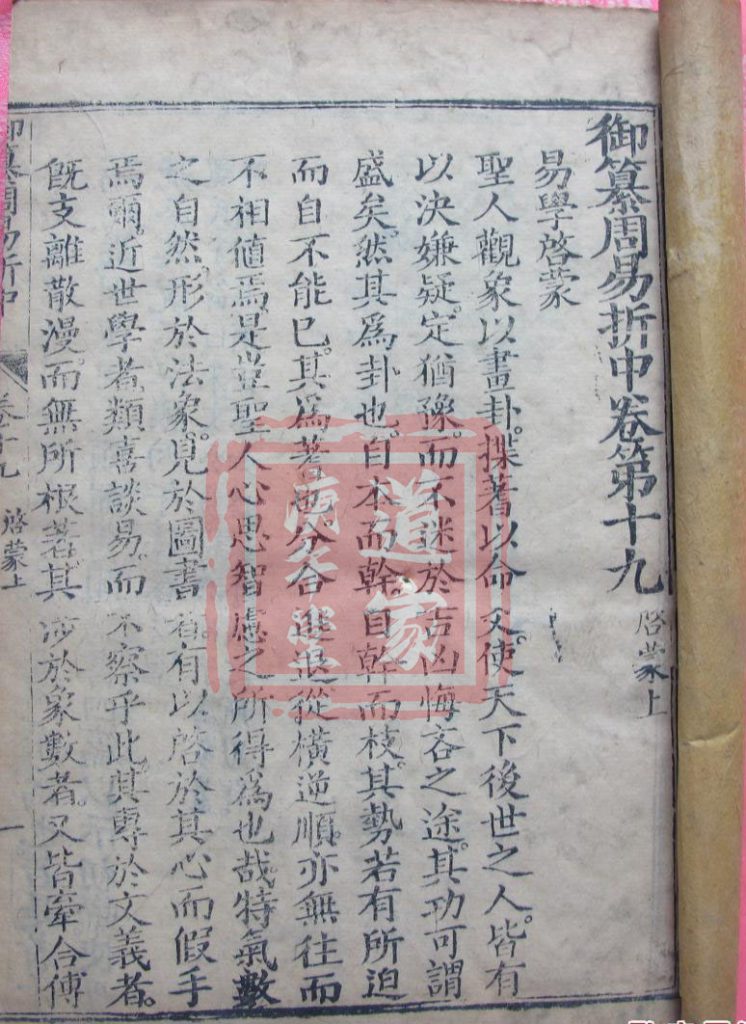 御纂周易折中卷第十九
啓蒙上
易學啓蒙
聖人觀象以畫卦。揲蓍以命爻。使天下後世之人。皆有
以决嫌疑。定猶豫。而不迷於吉凶悔吝之途。其功可謂
盛矣。然其爲卦也。自本而幹。自幹而枝。其勢若有所迫
而自不能已。其爲蓍也。分合進退。從橫逆順。亦無往而
不相値焉。是豈聖人心思智慮之所得爲也哉。特氣數
之自然。形於法象。見於圖書者。有以啓於其心而假手
焉爾。近世學者。類喜談易。而不察乎此。其專於文義者。
旣支離散漫。而無所根著。其涉於象數者。又皆牽合傅
御纂周易折中
卷十九
啓蒙上
一
道家